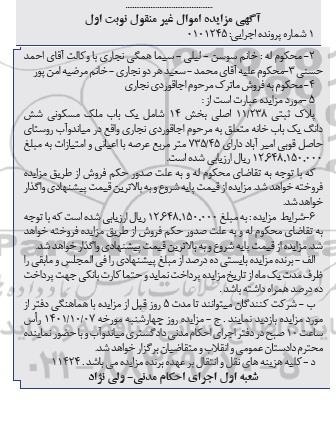 آگهی مزایده اموال غیر منقول نوبت اول
۱ شماره پرونده اجرایی: ۰۱۰۱۲۴۵
۲-محکوم له : خانم سوسن - لیلی - سیما همگی نجاری با وکالت آقای احمد
حسنی ۳-محکوم علیه آقای محمد - سعید هر دو نجاری - خانم مرضیه امن پور
۴-محکوم به فروش ماترک مرحوم اجاقوردی نجاری
۵-مورد مزایده عبارت است از :
پلاک ثبتی ۱۱/۲۳۸ اصلی بخش ۱۴ شامل یک باب ملک مسکونی شش
دانگ یک باب خانه متعلق به مرحوم اجاقوردی نجاری واقع در میاندوآب روستای
حاصل قوبی امیر آباد دارای ۷۳۵/۴۵ متر مربع عرصه با اعیانی و امتیازات به مبلغ
۱۲،۶۴۸،۱۵۰،۰۰۰ ریال ارزیابی شده است.
که با توجه به تقاضای محکوم له و به علت صدور حکم فروش از طریق مزایده
فروخته خواهد شد. مزایده از قیمت پایه شروع و به بالاترین قیمت پیشنهادی واگذار
خواهد شد.
۶-شرایط مزایده : به مبلغ ۱۲،۶۴۸،۱۵۰،۰۰۰ ریال ارزیابی شده است که با توجه
به تقاضای محکوم له و به علت صدور حکم فروش از طریق مزایده فروخته خواهد
شد. مزایده از قیمت پایه شروع و به بالاترین قیمت پیشنهادی واگذار خواهد شد.
الف - برنده مزایده بایستی ده درصد از مبلغ پیشنهادی را فی المجلس و مابقی را
ظرف مدت یک ماه از تاریخ مزایده پرداخت نماید و حتما کارت بانکی جهت پرداخت
ده درصد همراه داشته باشد.
ب - شرکت کنندگان میتوانند تا مدت ۵ روز قبل از مزایده با هماهنگی دفتر از
مورد مزایده بازدید نمایند . ج - مزایده روز چهارشنبه مورخه ۱۴۰۱/۱۰/۰۷ رأس
ساعت ۱۰ صبح در دفتر اجرای احکام مدنی دادگستری میاندوآب و با حضور نماینده
محترم دادستان عمومی و انقلاب و متقاضیان برگزار خواهد شد.
د - کلیه هزینه های نقل و انتقال بر عهده برنده مزایده می باشد . ۱۱۴۲۴
شعبه اول اجرای احکام مدنی- ولی نژاد